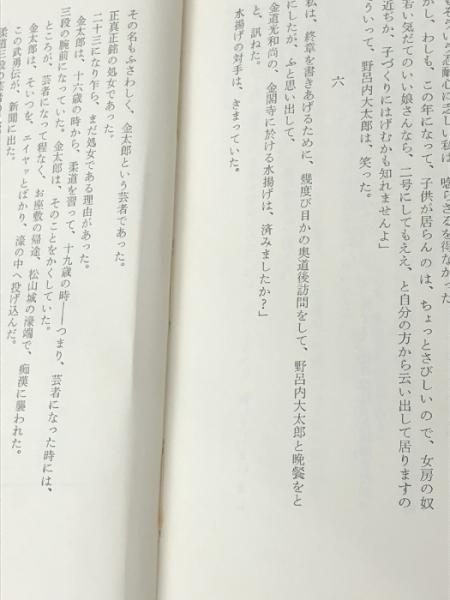 そういう忍耐心に乏しい私は、唸らざるを得なかった。
かし、わしも、この年になって、子供が居らんのは、ちょっとさびしいので、女房の奴
若い気だてのいい娘さんなら、二号にしてもええ、と自分の方から云い出して居りますの
近ぢか、子づくりにはげむかも知れませんよ」
ういって、野呂内大太郎は、笑った。
六
私は、終章を書きあげるために、幾度び目かの奥道後訪問をして、野呂内大太郎と晩餐をと
にしたが、ふと思い出して、
金道光和尚の、金閣寺に於ける水揚げは、済みましたか?」
と、訊ねた。
水揚げの対手は、きまっていた。
その名もふさわしく、金太郎という芸者であった。
正真正銘の処女であった。
二十三になり乍ら、まだ処女である理由があった。
金太郎は、十六歳の時から、柔道を習って、十九歳の時――つまり、芸者になった時には、
三段の腕前になっていた。金太郎は、そのことをかくしていた。
ところが、芸者になって程なく、お座敷の帰途、松山城の濠端で、痴漢に襲われた。
金太郎は、そいつを、エイヤッとばかり、濠の中へ投げ込んだ。
この武勇伝が、新聞に出た。
柔道三段の芸者